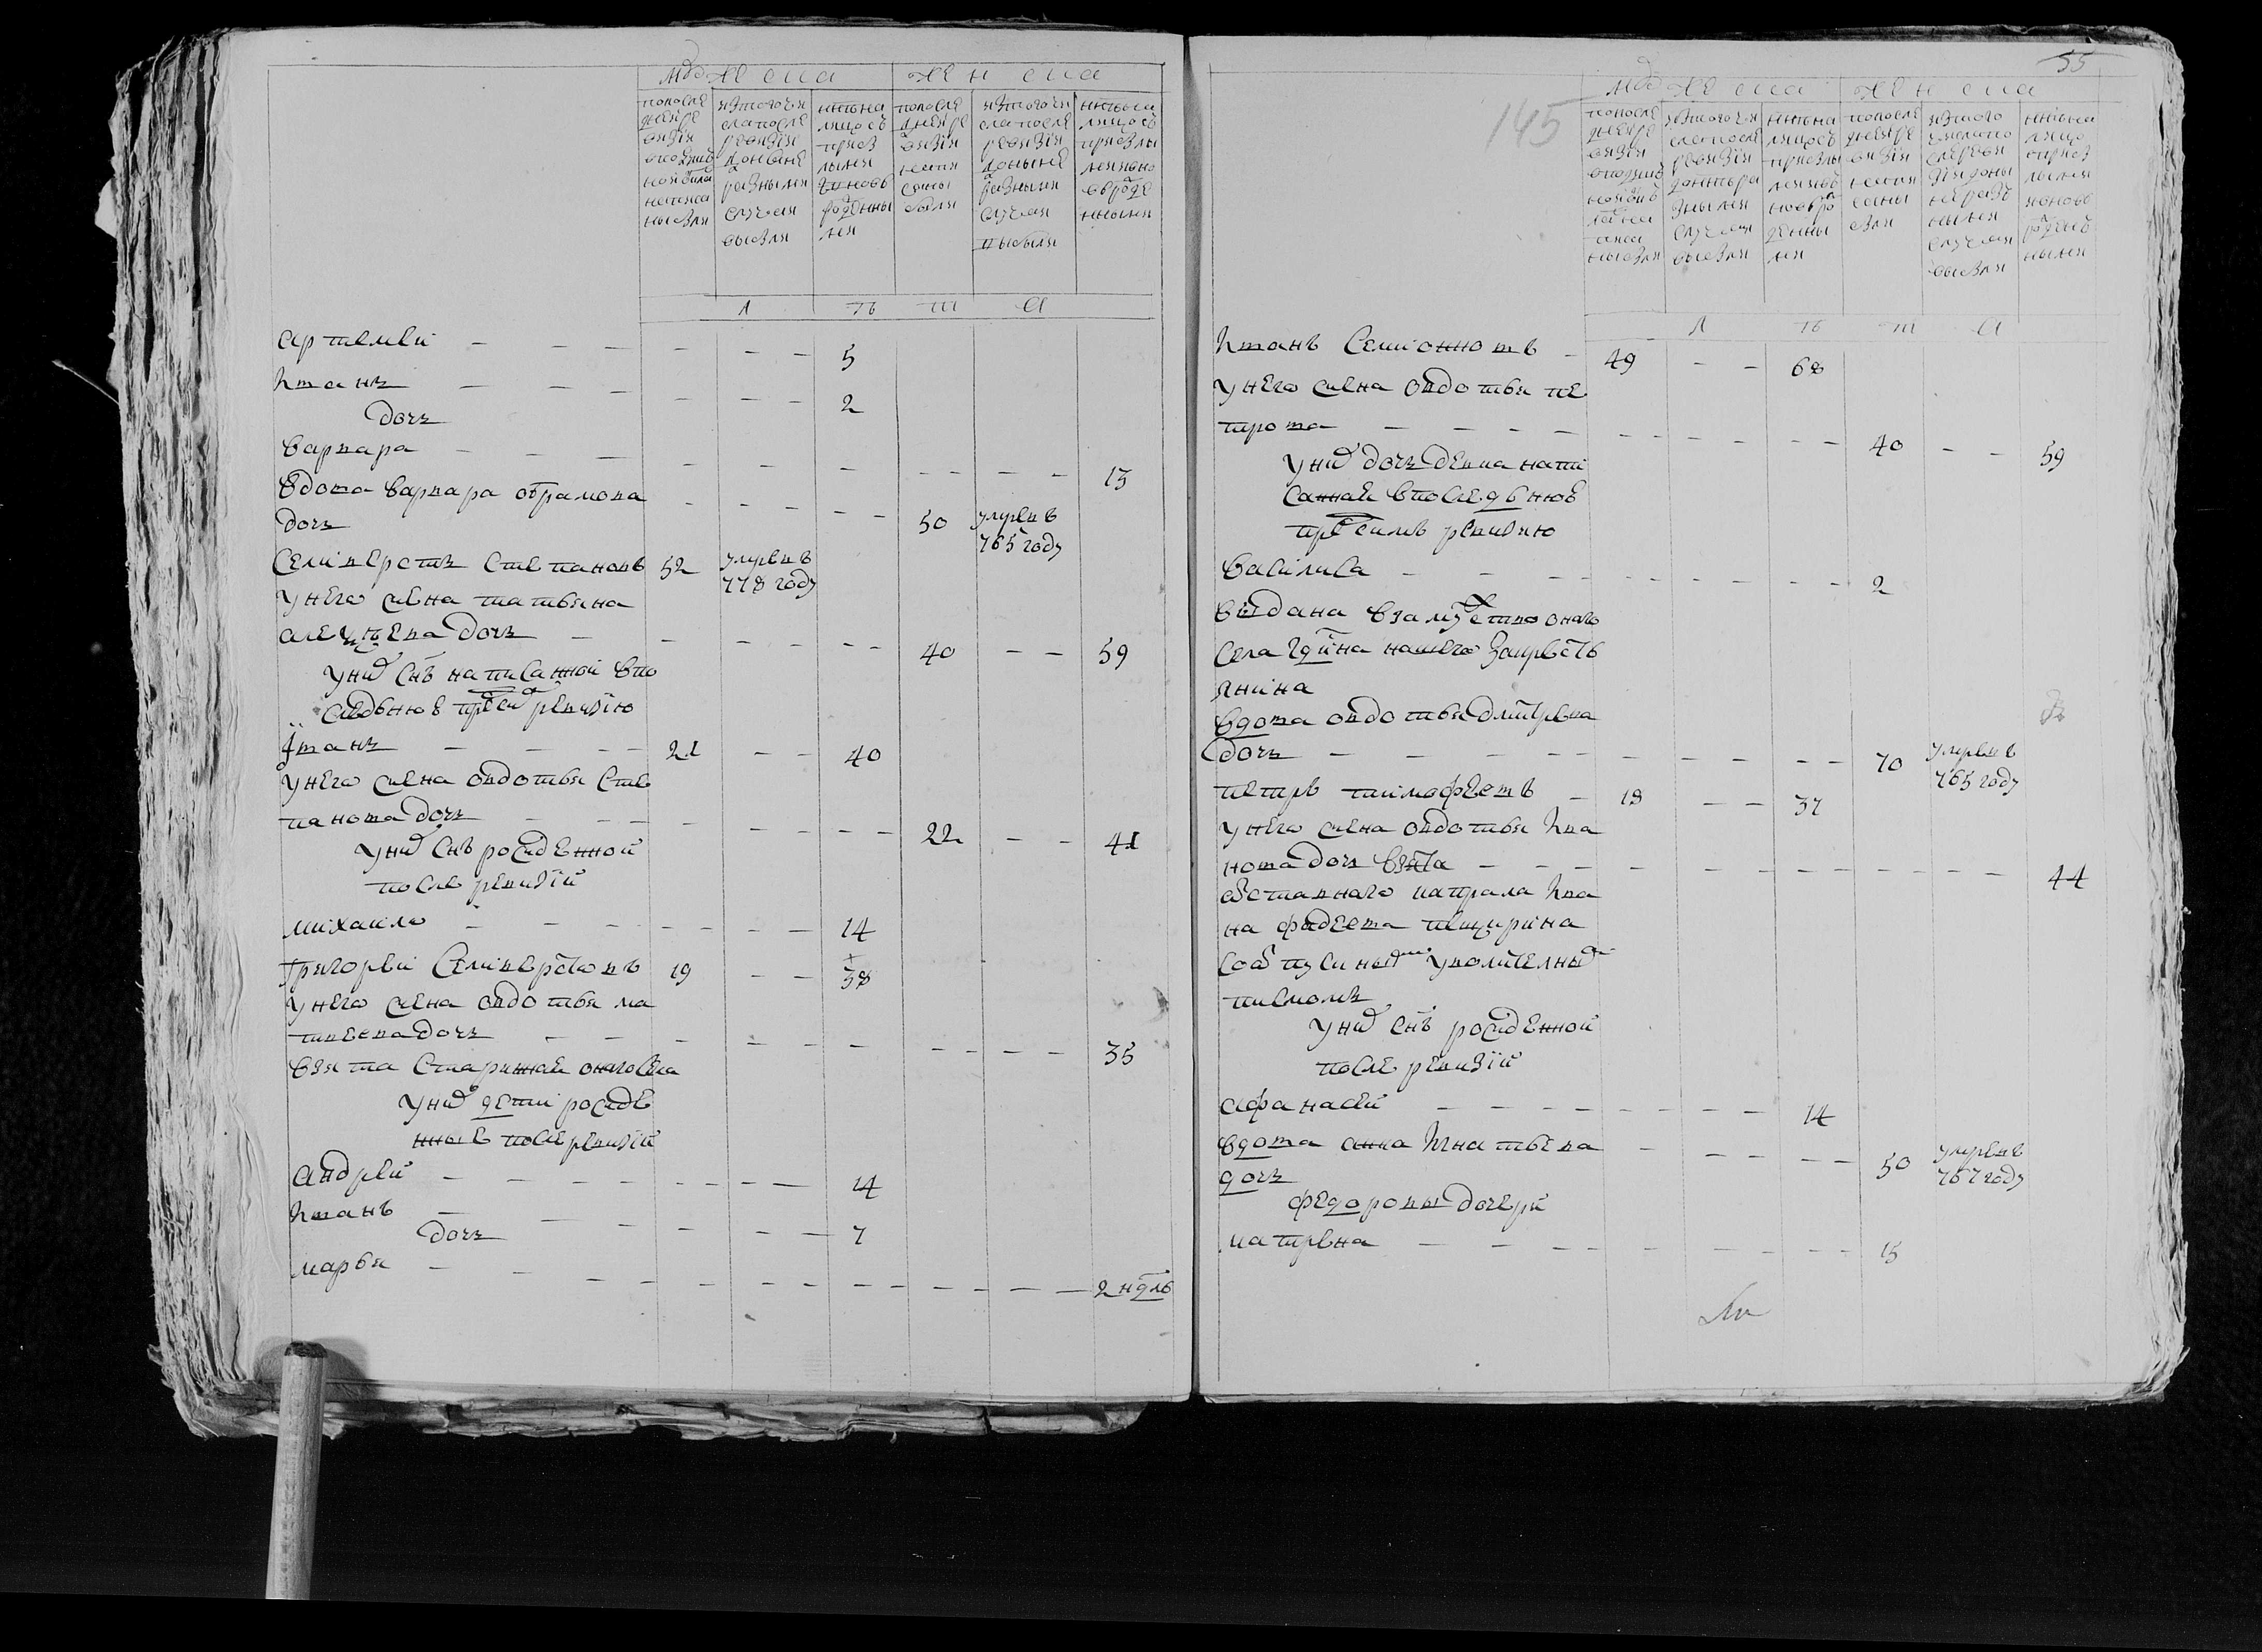 мужеска женска
по последней ревизии в подушной оклад написаны были
из того числа после ревизии до ныне разными случаи выбыли
ныне на лицо с прибылыми и вновь рожденными
по последней ревизии написаны были
из того числа после ревизии до ныне разными случаи выбыли
ныне на лицо с прибылыми и вновь рожденными
л ѣ т а
артемей — — — 5
Иванъ — — — 2
дочь
варвара — — — 13
вдова варвара абрамова
дочь 50 умре в 765 году
Селиверстъ Степановъ 52 умре в 778 году
у него жена татьяна
алексеева дочь — 40 — 59
у них снъ написанной в по
следьнюе пред сим ревизию
Иванъ — 21 — 40
у него жена овдотья Сте
панова дочь — 22 — 41
у них снъ рожденной
после ревизии
михаило — 14
Григорей Селиверстовъ 19 — 38
у него жена овдотья ма
твеева дочь — 35
взята старинная оного села
у них дети рожде
нные после ревизии
андрей — 14
Иванъ — 7
дочь
марья — 2 ндль
55
145
мужеска женска
л ѣ т а
Иванъ Семионовъ — 49 — 68
у него жена овдотья пе
трова — 40 — 59
у них дочь девка напи
санная в последьнюю
пред сим ревизию
василиса — 2
выдана в замужество оного
села г͠дина нашего за крестья
янина
вдова овдотья дмитрева
дочь — 70 умре в 765 году
петръ тимофеевъ — 18 — 37
у него жена овдотья Ива
нова дочь взята — 44
отставного капрала Ива
на фадеева
уволителным
писмомъ
у них снъ рожденной
после ревизии
афанасей — 14
вдова анна Игнатьева — 50 умре в 767 году
дочь
федоровы дочери
матрена — 15